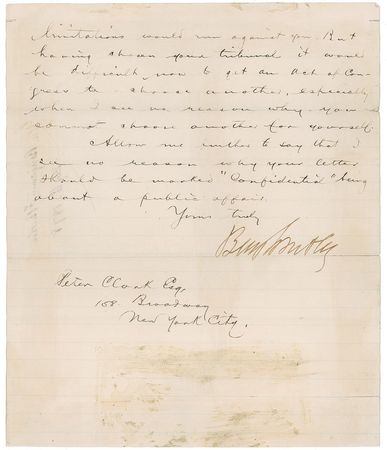 limitations would run against you. But
having chosen your tribunal it would
be difficult now to get an act of Con-
gress to choose another, especially
when I see no reason why you
cannot choose another for yourself.
Allow me further to say that I
see no reason why your letter
should be marked "Confidential" being
about a public affair.
Yours truly
Benj F Butler
Peter Cloak Esq,
158 Broadway
New York City.